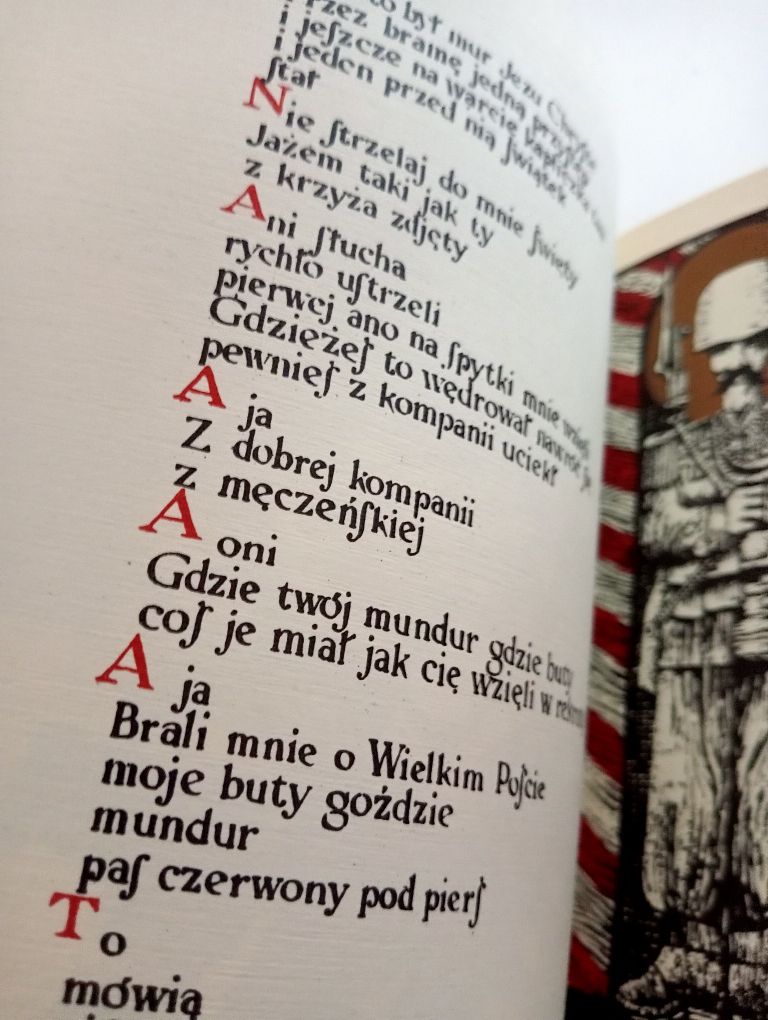 to był mur Jezu
przez bramę jedną
i jeszcze na warcie kapliczka
i jeden przed nią ſwiątek
ſtał
Nie ſtrzelaj do mnie ſwięty
Jażem taki jak ty
z krzyża zdjęty
Ani ſłucha
rychło uſtrzeli
pierwej ano na ſpytki mnie wzięli
Gdzieżeſ to wędrował
pewnieſ z kompanii uciekł
A ja
Z dobrej kompanii
z męczeńſkiej
A oni
Gdzie twój mundur gdzie buty
coſ je miał jak cię wzięli w
A ja
Brali mnie o Wielkim Poſcie
moje buty goździe
mundur
paſ czerwony pod pierſ
To
mówią